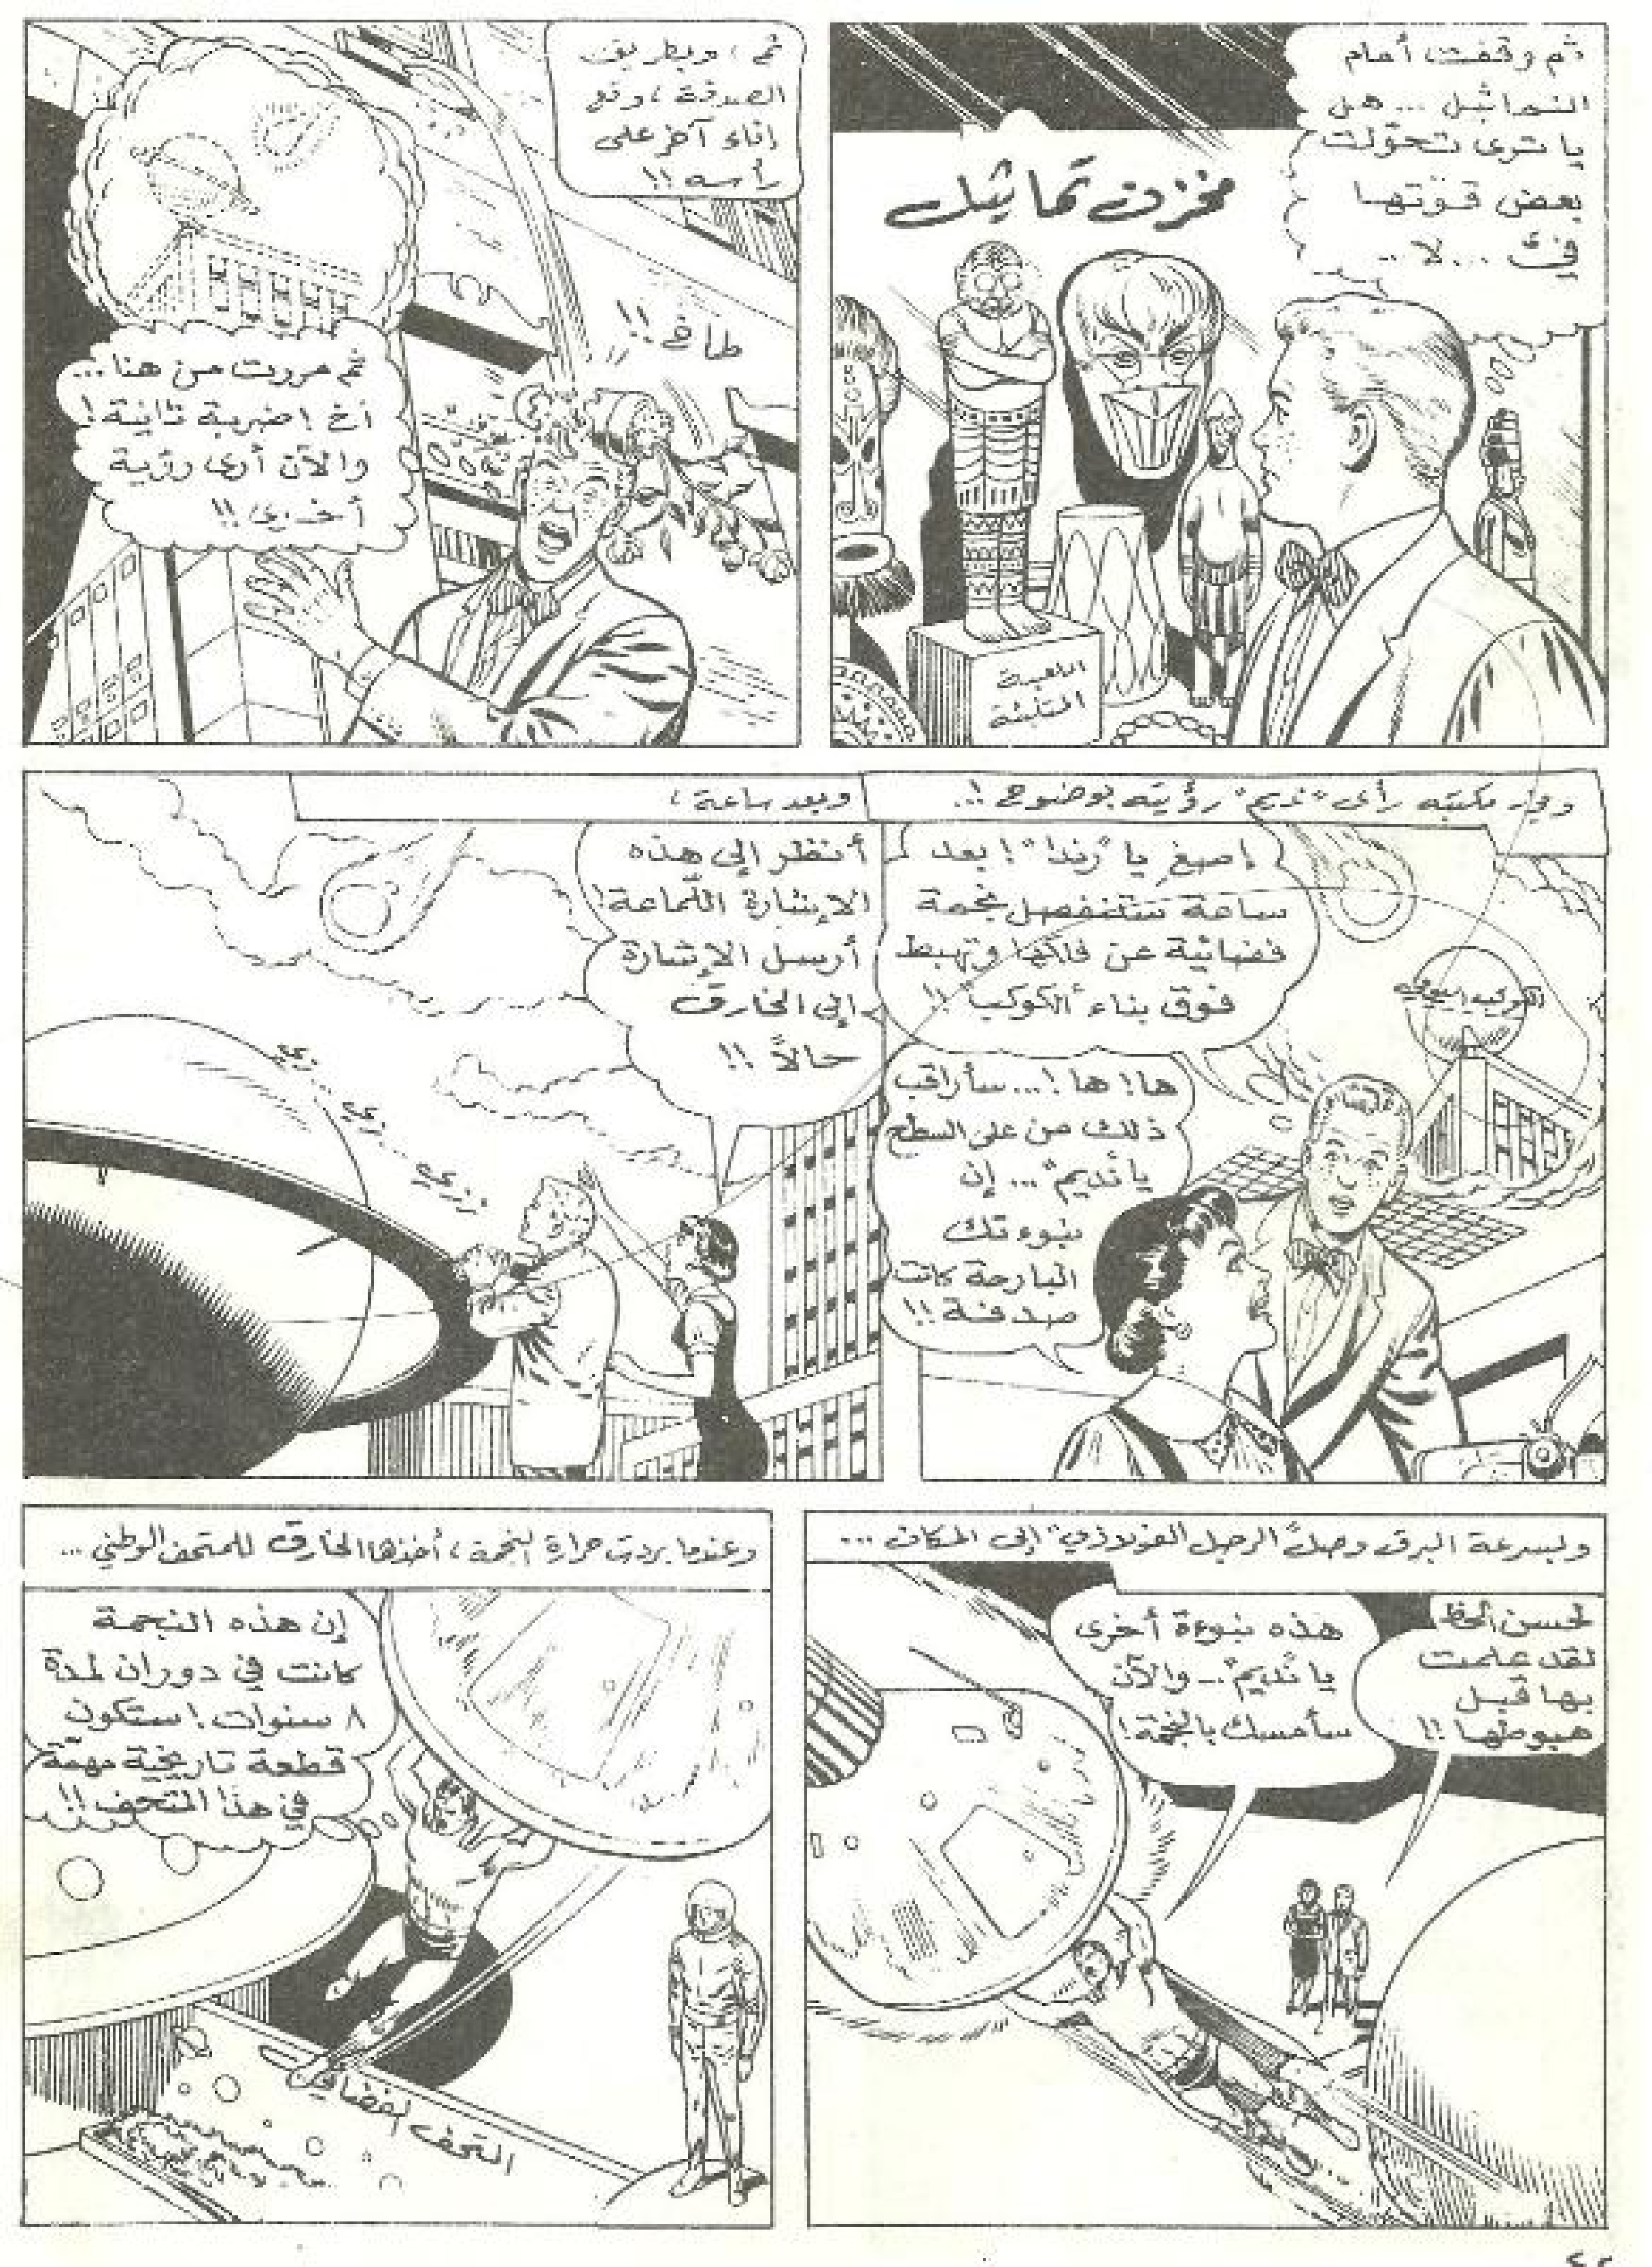 ثم وقفت أمام
التماثيل ... هل
يا ترى تحوّلت
بعض قوّتها
فيّ ... لا ..
مخزن تماثيل
اللعبة
ثم ، وبطريق
الصدفة ، وقع
إناء آخر على
رأسه !!
طاخ !!
ثم مررت من هنا ...
أخ ! ضربة ثانية !
والآن أرى رؤية
أخرى !!
وفي مكتبه رأى "نديم" رؤيته بوضوح !..
إصغ يا "رندا" ! بعد
ساعة ستنفصل نجمة
فضائية عن فلكها وتهبط
فوق بناء "الكوكب" !!
الكوكب اليومي
ها ! ها ! ... سأراقب
ذلك من على السطح
يا "نديم" ... إن
نبوءتك
البارحة كانت
صدفة !!
وبعد ساعة ،
أنظر إلى هذه
الإشارة اللمّاعة !
أرسل الإشارة
إلى الخارق
حالاً !!
وبسرعة البرق وصل "الرجل الفولاذي" إلى المكان ...
لحسن الحظ
لقد علمت
بها قبل
هبوطها !!
هذه نبوءة أخرى
يا "نديم" .. والآن
سأمسك بالنجمة !
وعندما بردت حرارة النجمة ، أخذها الخارق للمتحف الوطني ...
إن هذه النجمة
كانت في دوران لمدة
٨ سنوات ! ستكون
قطعة تاريخية مهمّة
في هذا المتحف !!
المتحف الفضائي